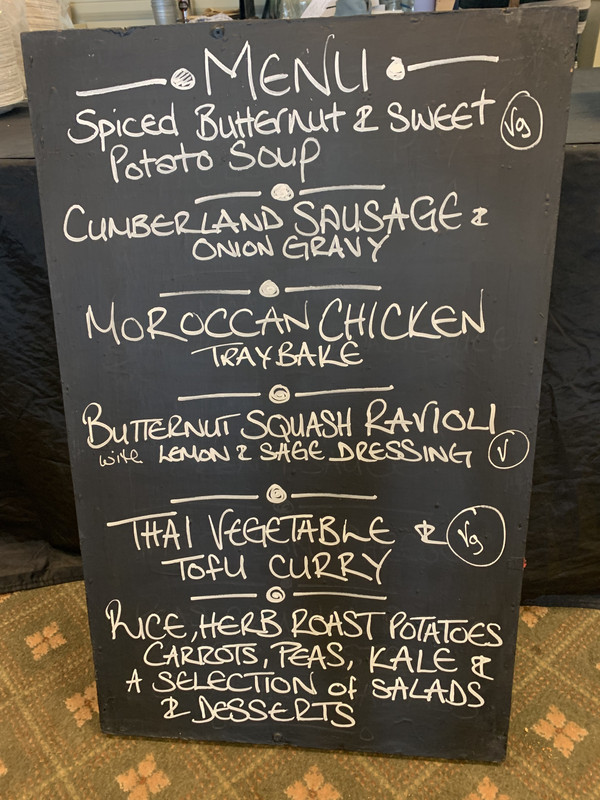 MENU
Spiced Butternut & SWEET Vg
Potato Soup
CUMBERLAND SAUSAGE &
ONION GRAVY
MOROCCAN CHICKEN
TRAYBAKE
BUTTERNUT SQUASH RAVIOLI
with LEMON & SAGE DRESSING V
THAI VEGETABLE & Vg
TOFU CURRY
RICE, HERB ROAST POTATOES
CARROTS, PEAS, KALE &
A SELECTION of SALADS
& DESSERTS